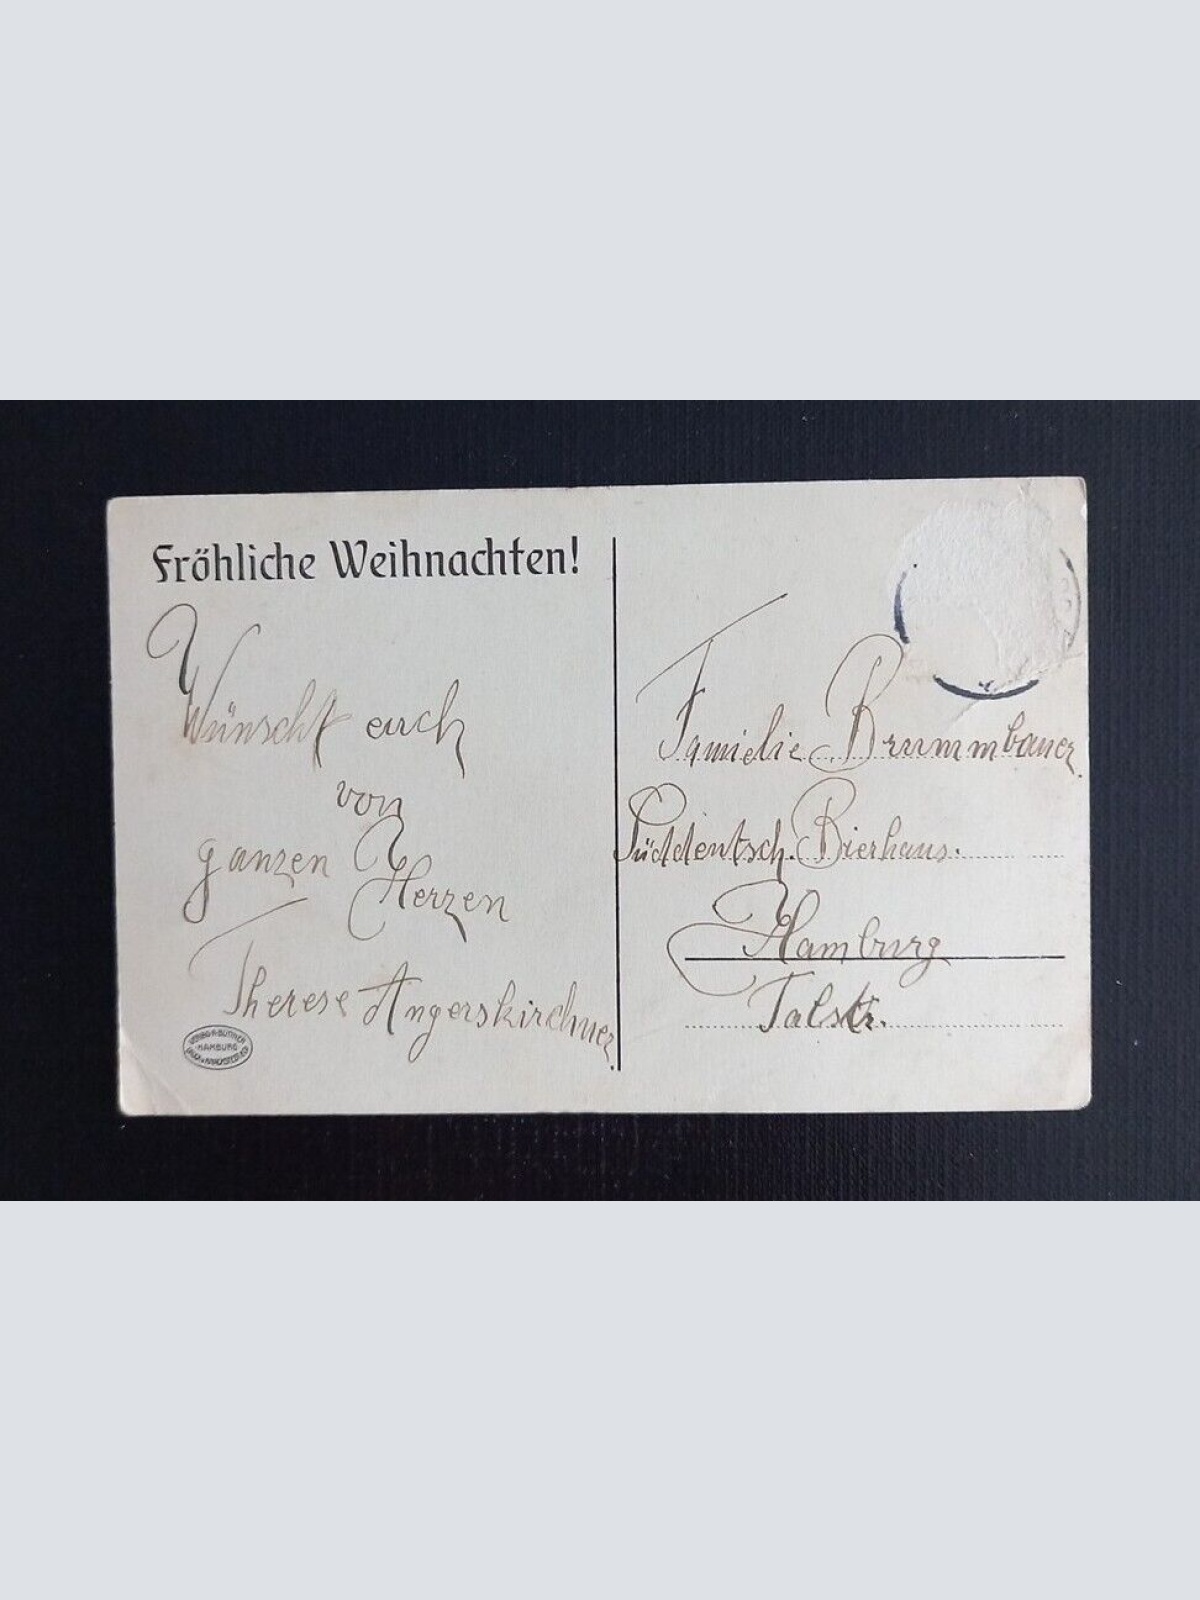 Fröhliche Weihnachten!
Wünscht euch
von
ganzen
Herzen
Therese Angerskirchner.
HAMBURG
Familie Brummbauer.
Süddeutsch. Bierhaus.
Hamburg
Talstr.